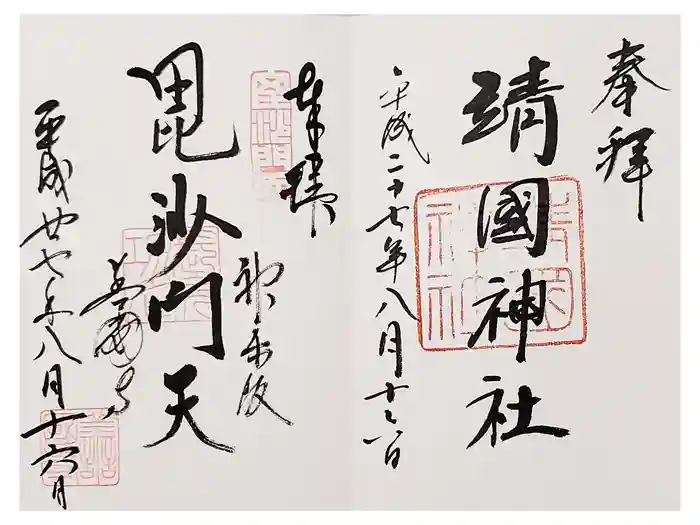 奉拝
靖國神社
平成二十七年八月十六日
奉拝
毘沙門天
神楽坂
善國寺
平成廿七年八月十六日